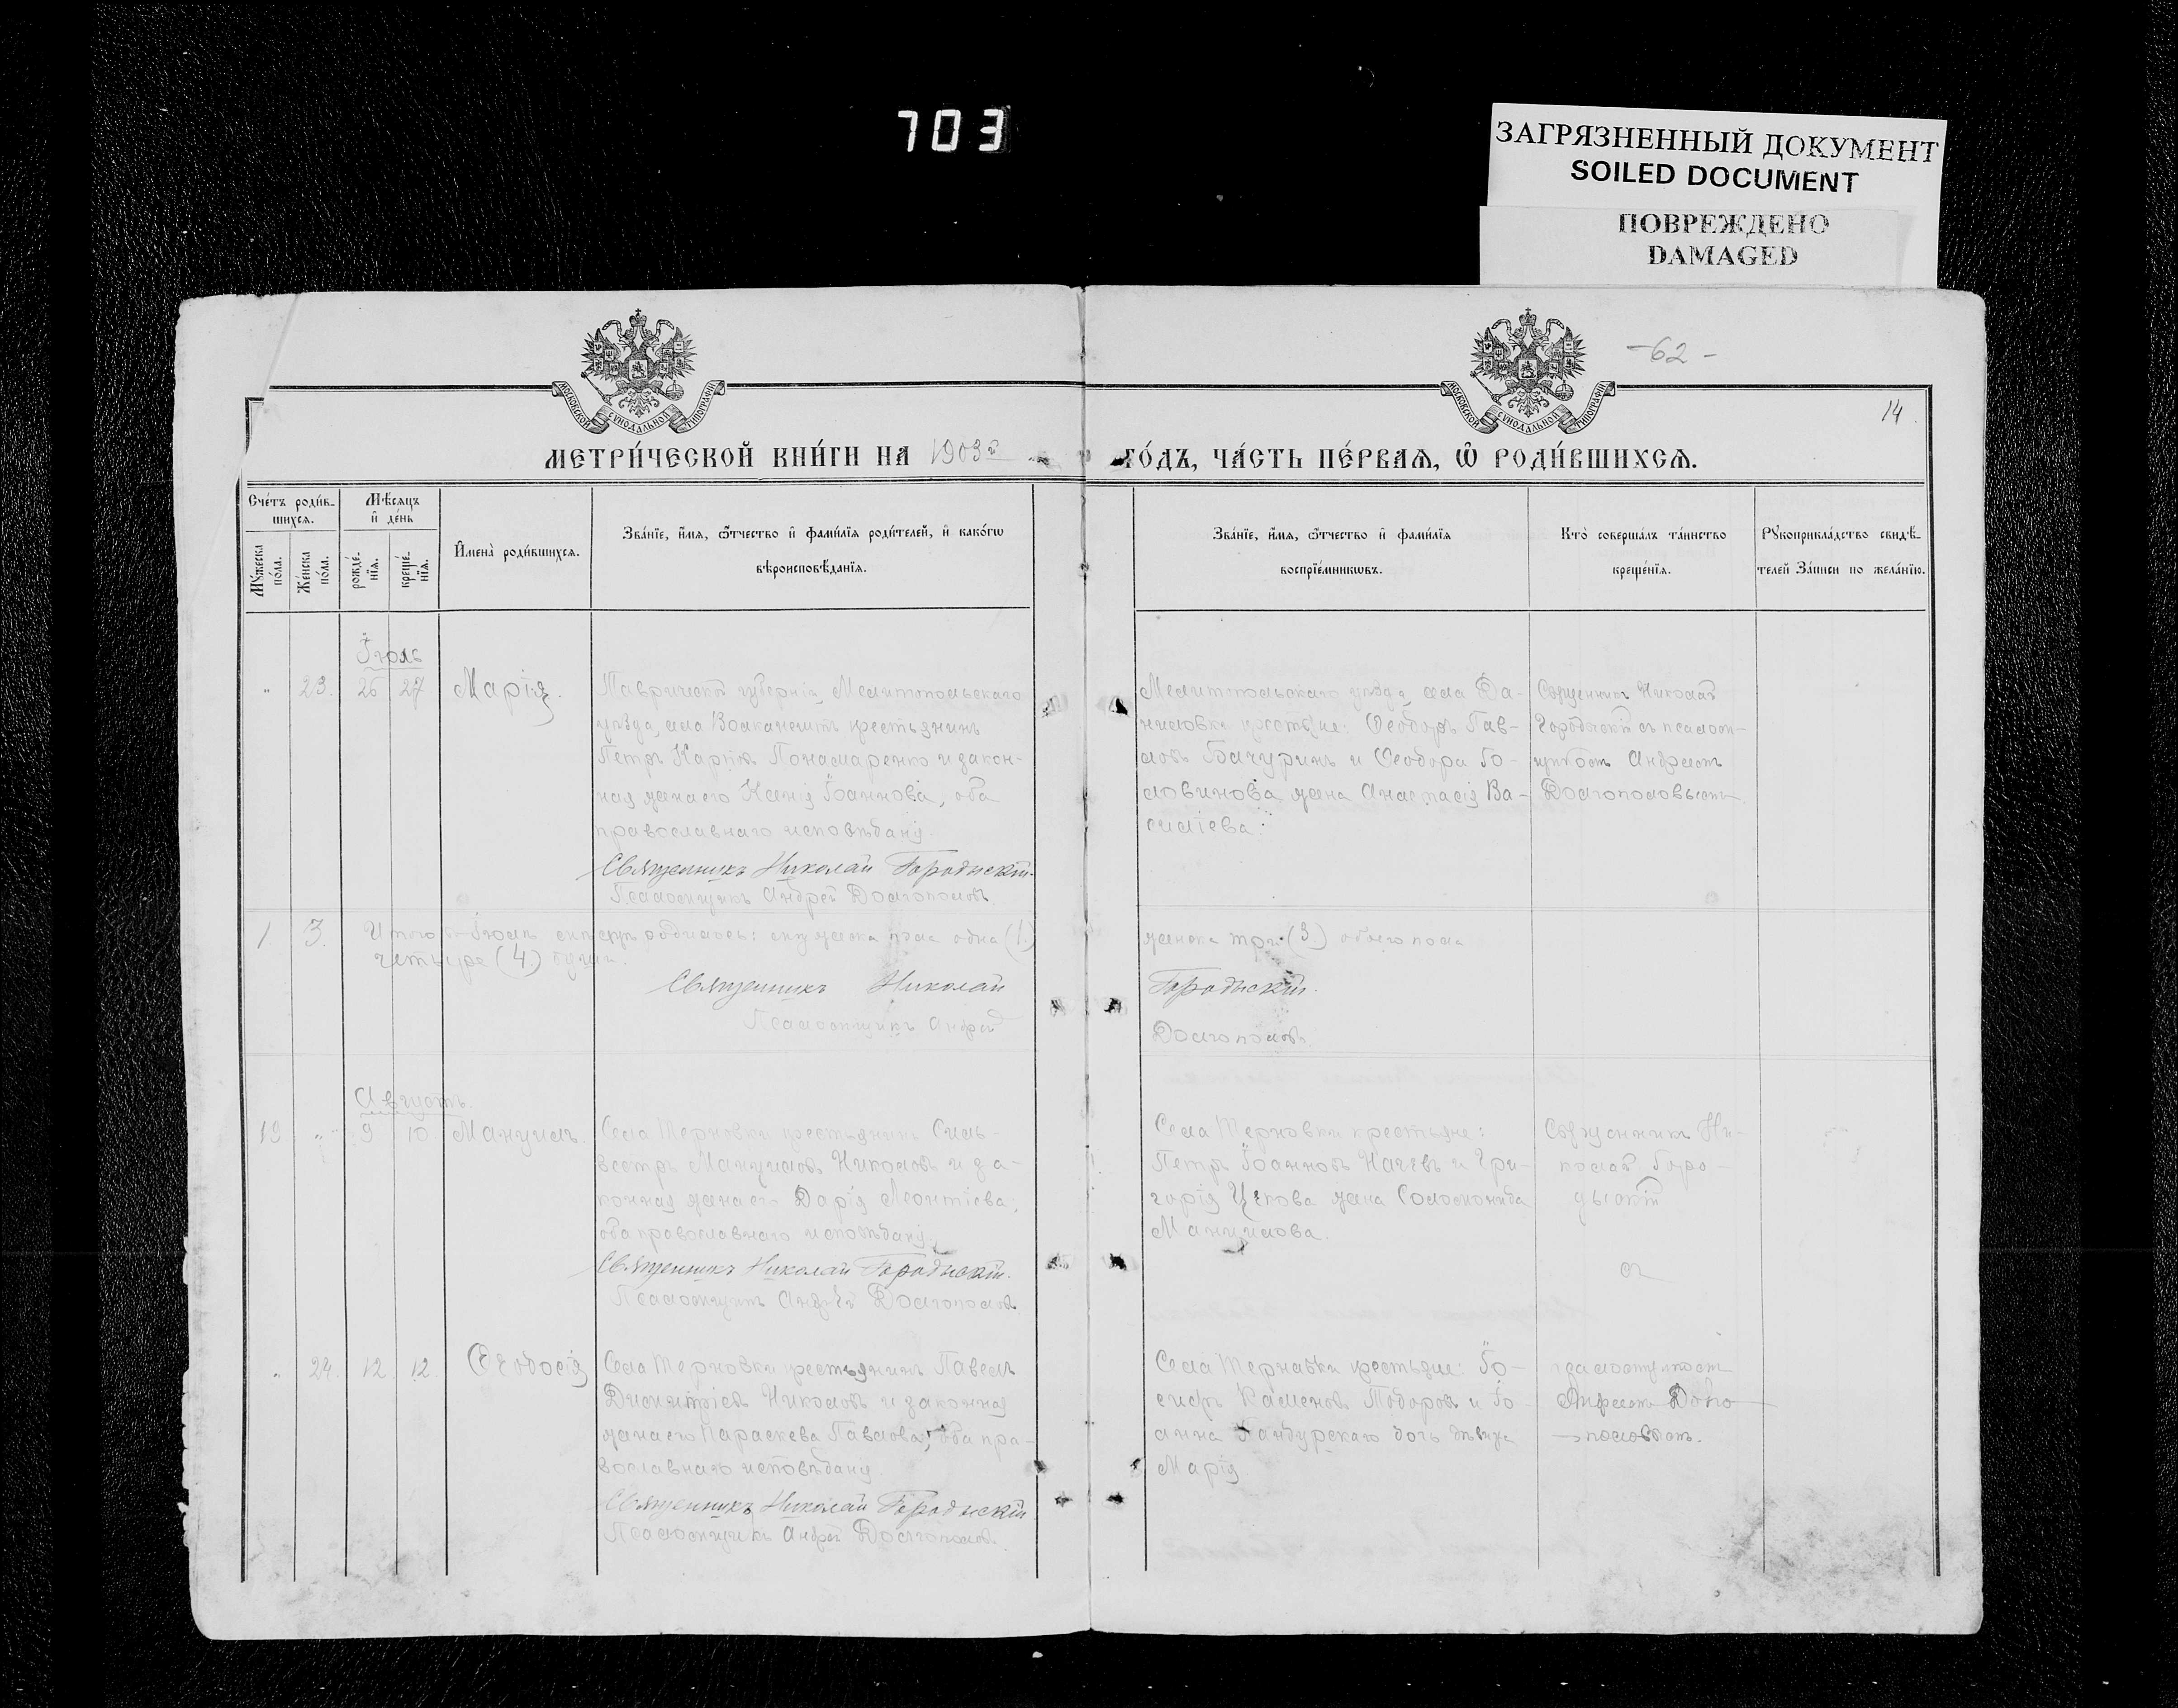 703
ЗАГРЯЗНЕННЫЙ ДОКУМЕНТ
SOILED DOCUMENT
ПОВРЕЖДЕНО
DAMAGED
-62-
14.
МОСКОВСКОЙ СѴНОДАЛЬНОЙ ТИПОГРАФІИ
МОСКОВСКОЙ СѴНОДАЛЬНОЙ ТИПОГРАФІИ
МЕТРИ́ЧЕСКОЙ КНИ́ГИ НА 1903й
ГО́ДЪ, ЧА́СТЬ ПЕ́РВАѦ, Ѡ РОДИ́ВШИХСѦ.
Сче́тъ роди́в-
шихсѧ.
Мꙋжеска по́ла.
Же́нска по́ла.
Мѣ́сѧцъ
и де́нь
рожде́-нїѧ.
креще́-нїѧ.
Имена̀ роди́вшихсѧ.
Зва́нїе, и́мѧ, ѻ҆́тчество и фами́лїѧ роди́телей, и како́гѡ
вѣроисповѣ́данїѧ.
Зва́нїе, и́мѧ, ѻ҆́тчество и фами́лїѧ
воспрїе́мникѡвъ.
Кто̀ соверша́лъ та́инство
креще́нїѧ.
Рꙋкоприкла́дство свидѣ́-
телей за́писи по жела́нїю.
Іюль
" 23. 26 27 Марія.
Таврической губерніи Мелитопольскаго
уѣзда, села Волканешть крестьянинъ
Петръ Карповъ Понамаренко и закон-
ная жена его Ксенія Іоаннова, оба
православнаго исповѣданія.
Священникъ Николай Городискій.
Псаломщикъ Андрей Долгополовъ
Мелитопольскаго уѣзда села Да-
ниловки крестьяне: Ѳеодоръ Пав-
ловъ Бачуринъ и Ѳеодора Го-
ловинова жена Анастасія Ва-
силіева.
Священникъ Николай
Городискій съ псаломщ-
щикомъ Андреемъ
Долгополовымъ
1 3. Итого въ Іюлѣ мѣсяцѣ родилось: мужеска пола одна (1.)
четыре (4) души.
женска три (3) обоего пола
Священникъ Николай
Городискій.
Псаломщикъ Андрей
Долгополовъ
Августъ.
19 " 9 10 Мануилъ.
Села Терновки крестьянинъ Силь-
вестръ Мануиловъ Николовъ и за-
конная жена его Дарія Леонтіева,
оба православнаго исповѣданія.
Священникъ Николай Городискій.
Псаломщикъ Андрей Долгополовъ
Села Терновки крестьяне:
Петръ Іоанновъ Начевъ и Гри-
горія Цекова жена Соломонида
Мануилова.
Священникъ Ни-
колай Горо-
дискій
съ
" 24. 12. 12. Ѳеодосія
Села Терновки крестьянинъ Павелъ
Димитріевъ Николовъ и законная
жена его Параскева Павлова, оба пра-
вославнаго исповѣданія
Священникъ Николай Городискій
Псаломщикъ Андрей Долгополовъ.
Села Терновки крестьяне: Іо-
сифъ Каменовъ Тодоровъ и Іо-
анна дочь дѣвица
Марія
псаломщикомъ
Андреемъ Долго-
половымъ.